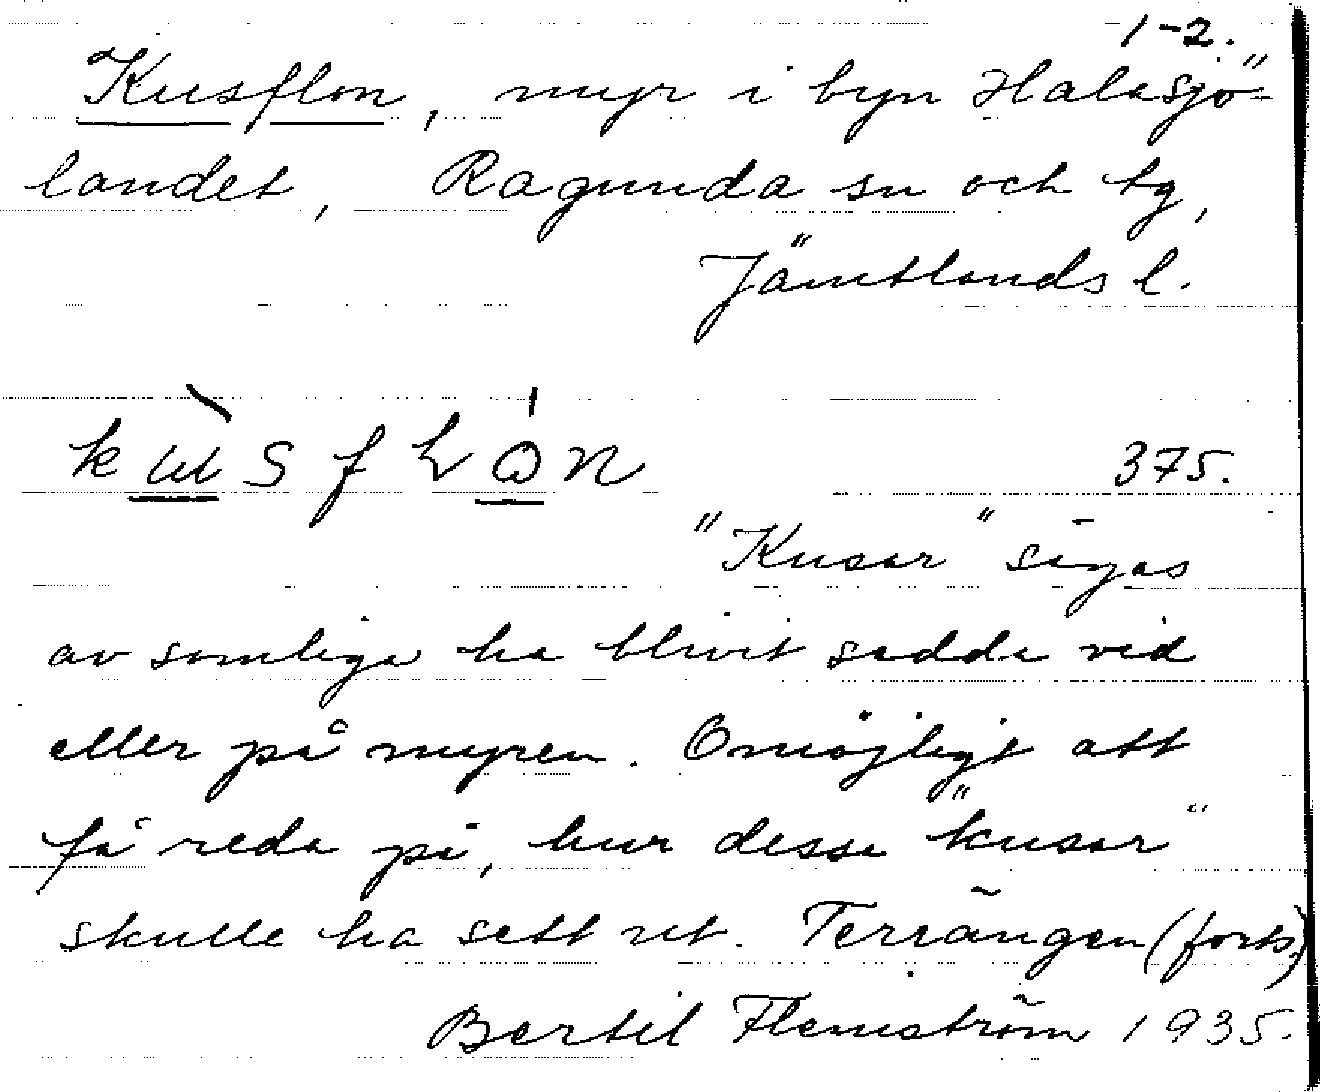 1-2.
Kusflon, myr i byn Halasjö-
landet, Ragunda sn och tg,
Jämtlands l.
375.
"Kusar" sägas
av somliga ha blivit sedda vid
eller på myren. Omöjligt att
få reda på, hur dessa "kusar"
skulle ha sett ut. Terrängen (forts.)
Bertil Flemström 1935.